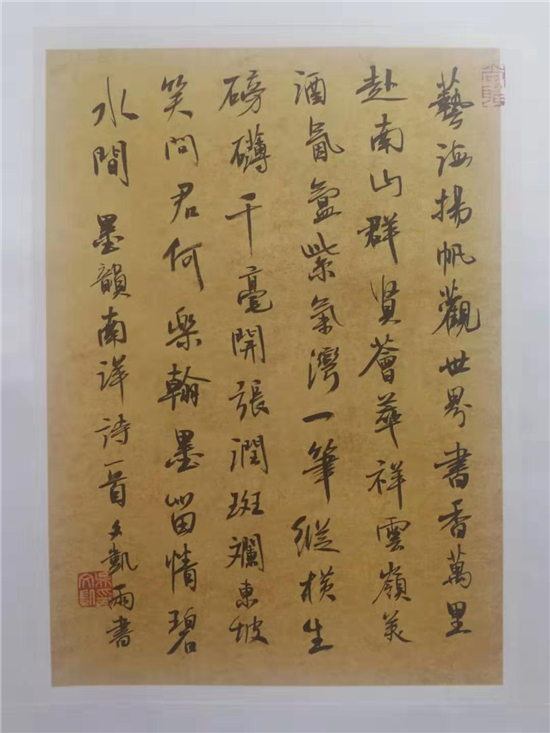 藝海揚帆觀世界書香萬里
赴南山群賢薈萃祥雲嶺美
酒氤氳紫氣灣一筆縱横生
磅礴千毫開張潤斑斕東坡
笑問君何樂翰墨留情碧
水間 墨韻南洋詩一首文凱雨書